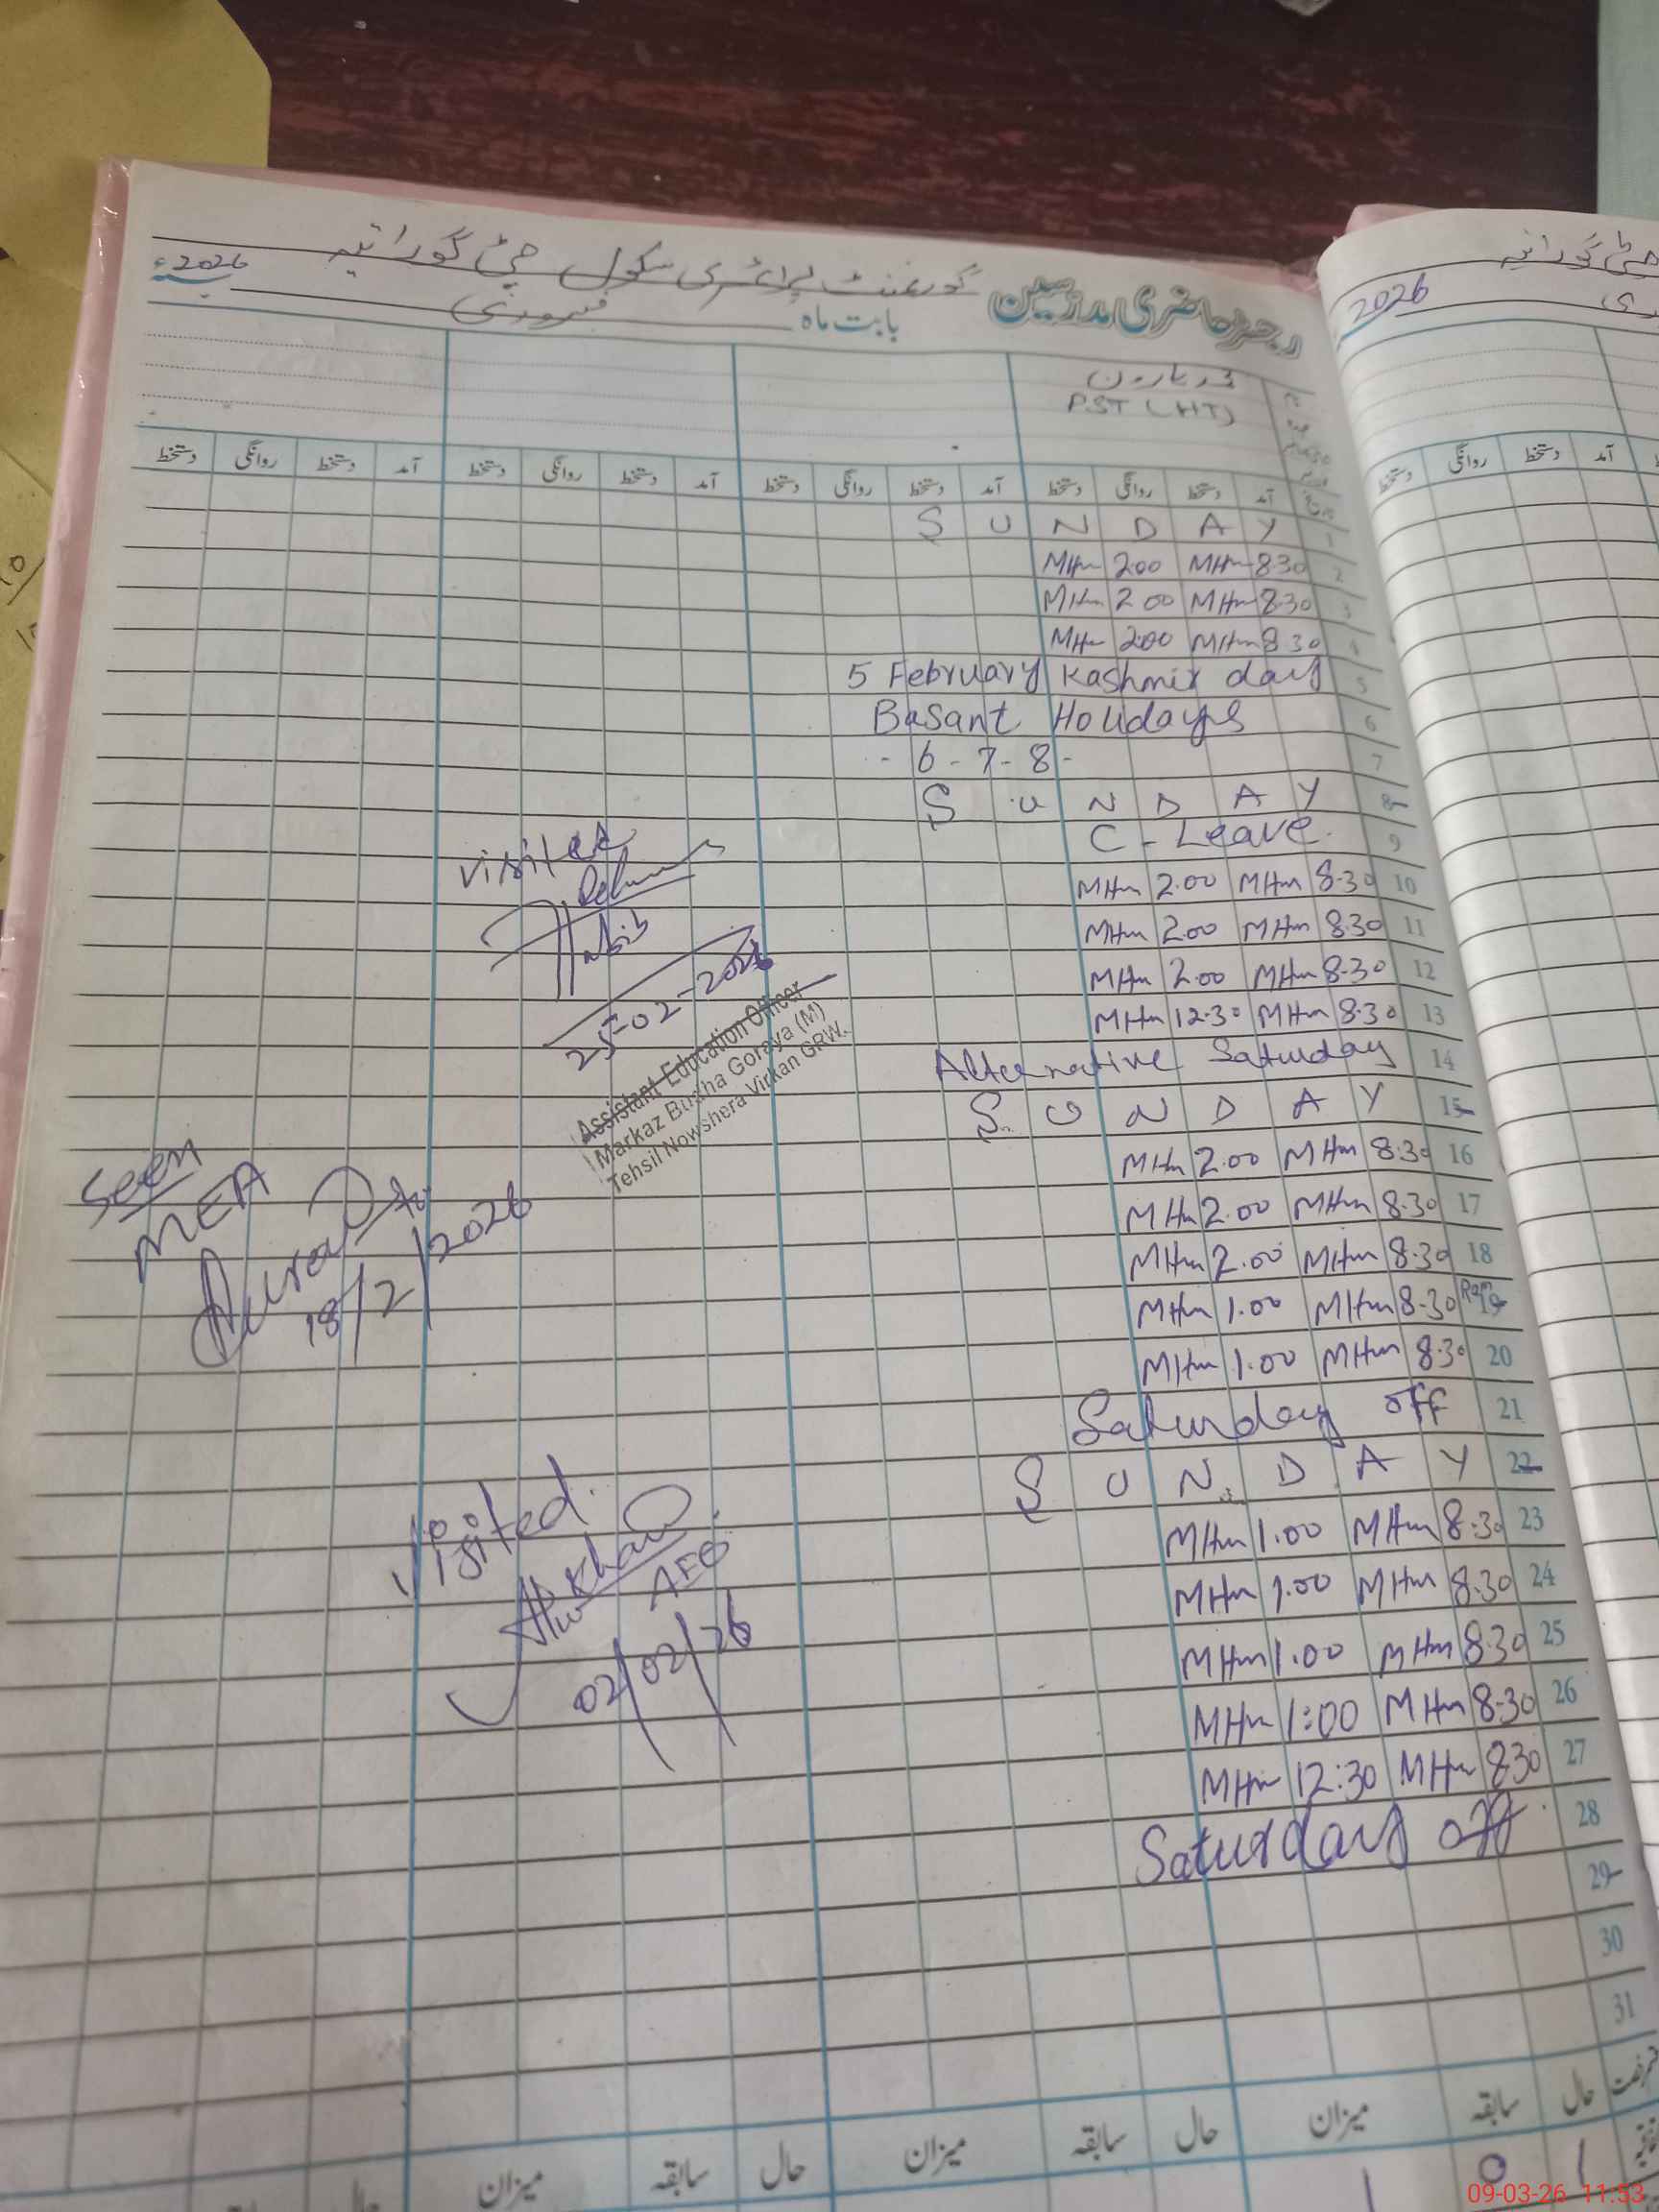 رجسٹر حاضری مدرسین گورنمنٹ پرائمری سکول چٹی گورائیہ
بابت ماہ فروری 2026ء
محمد ہارون
PST (HT)
آمد دستخط روانگی دستخط آمد دستخط روانگی دستخط آمد دستخط روانگی دستخط آمد دستخط روانگی دستخط
1 S U N D A Y
2 8.30 MHm 2.00 MHm
3 8.30 MHm 2.00 MHm
4 8.30 MHm 2.00 MHm
5 5 February Kashmir day
6 Basant Holidays
7 - 6 - 7 - 8 -
8 S U N D A Y
9 C - Leave.
10 8.30 MHm 2.00 MHm
11 8.30 MHm 2.00 MHm
12 8.30 MHm 2.00 MHm
13 8.30 MHm 12.30 MHm
14 Alternative Saturday
15 S U N D A Y
16 8.30 MHm 2.00 MHm
17 8.30 MHm 2.00 MHm
18 8.30 MHm 2.00 MHm
19 8.30 MHm 1.00 MHm
20 8.30 MHm 1.00 MHm
21 Saturday off
22 S U N D A Y
23 8.30 MHm 1.00 MHm
24 8.30 MHm 1.00 MHm
25 8.30 MHm 1.00 MHm
26 8.30 MHm 1:00 MHm
27 8.30 MHm 12:30 MHm
28 Saturday off
29
30
31
حال سابقہ میزان حال سابقہ میزان حال سابقہ میزان
1 0 1
visited
25-02-2026
Assistant Education Officer
Markaz Buttha Goraya (M)
Tehsil Nowshera Virkan GRW.
Seen
MEA
18/2/2026
Visited.
AEO
02/02/26
2026
آمد دستخط روانگی دستخط
09-03-26 11:53